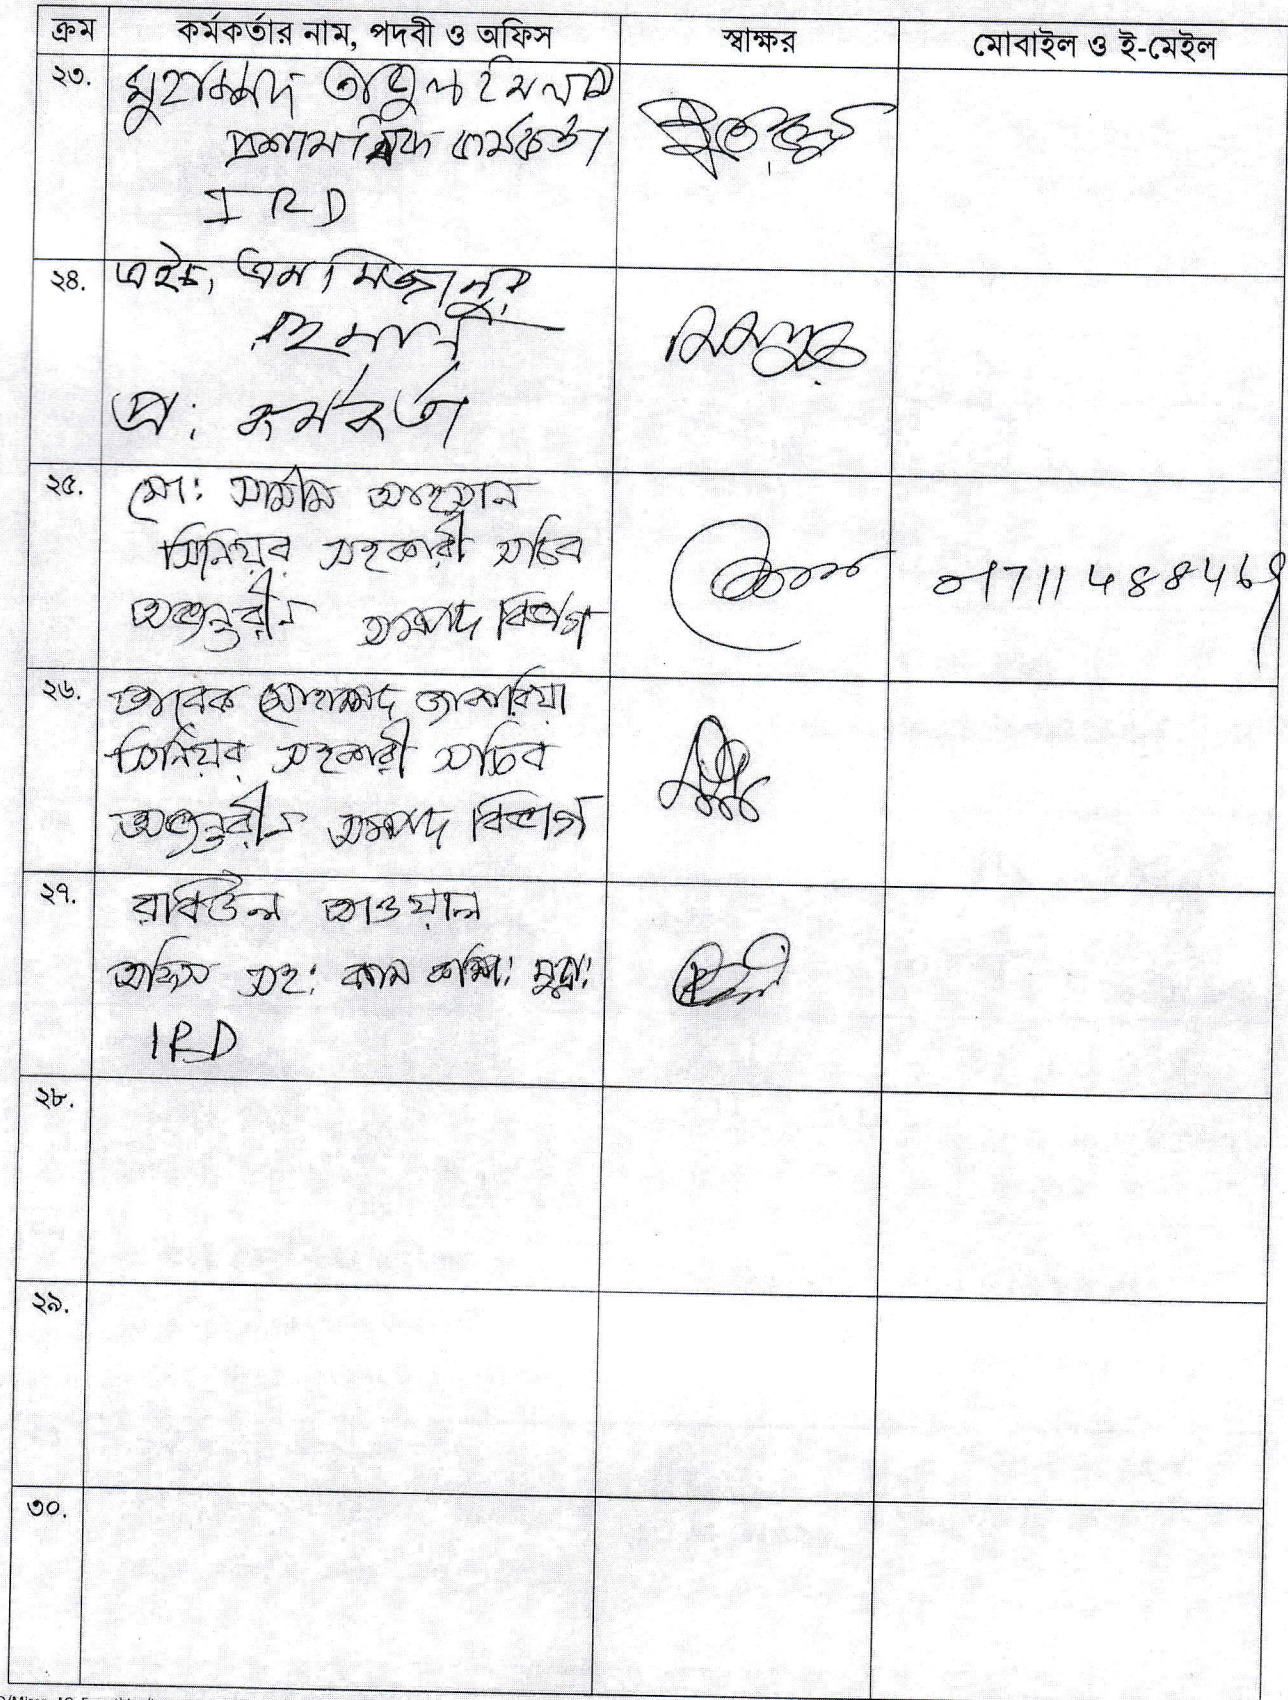 ক্রম কর্মকর্তার নাম, পদবী ও অফিস স্বাক্ষর মোবাইল ও ই-মেইল
২৩. মুহাম্মদ
প্রশাসনিক কর্মকর্তা
IRD
২৪. এইচ, এম মিজানুর
রহমান
প্র: কর্মকর্তা
২৫. মো: শামীম আহসান
সিনিয়র সহকারী সচিব
অভ্যন্তরীণ সম্পদ বিভাগ
২৬. তারেক মোহাম্মদ জাকারিয়া
সিনিয়র সহকারী সচিব
অভ্যন্তরীণ সম্পদ বিভাগ
২৭. রবিউল আওয়াল
অফিস সহ: কাম কম্পি: মুদ্রা:
IRD
২৮.
২৯.
৩০.